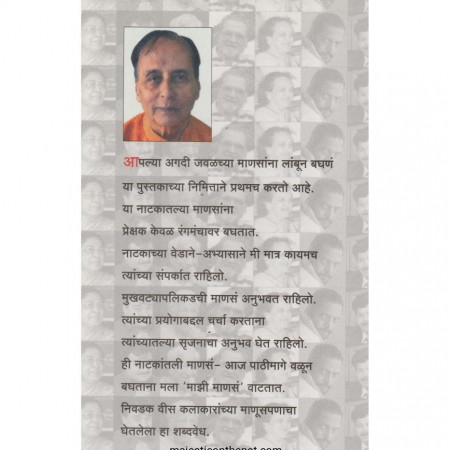 आपल्या अगदी जवळच्या माणसांना लांबून बघणं
या पुस्तकाच्या निमित्ताने प्रथमच करतो आहे.
या नाटकातल्या माणसांना
प्रेक्षक केवळ रंगमंचावर बघतात.
नाटकाच्या वेडाने-अभ्यासाने मी मात्र कायमच
त्यांच्या संपर्कात राहिलो.
मुखवट्यापलिकडची माणसं अनुभवत राहिलो.
त्यांच्या प्रयोगाबद्दल चर्चा करताना
त्यांच्यातल्या सृजनाचा अनुभव घेत राहिलो.
ही नाटकांतली माणसं- आज पाठीमागे वळून
बघताना मला 'माझी माणसं' वाटतात.
निवडक वीस कलाकारांच्या माणूसपणाचा
घेतलेला हा शब्दवेध.
majesticonthenet.com